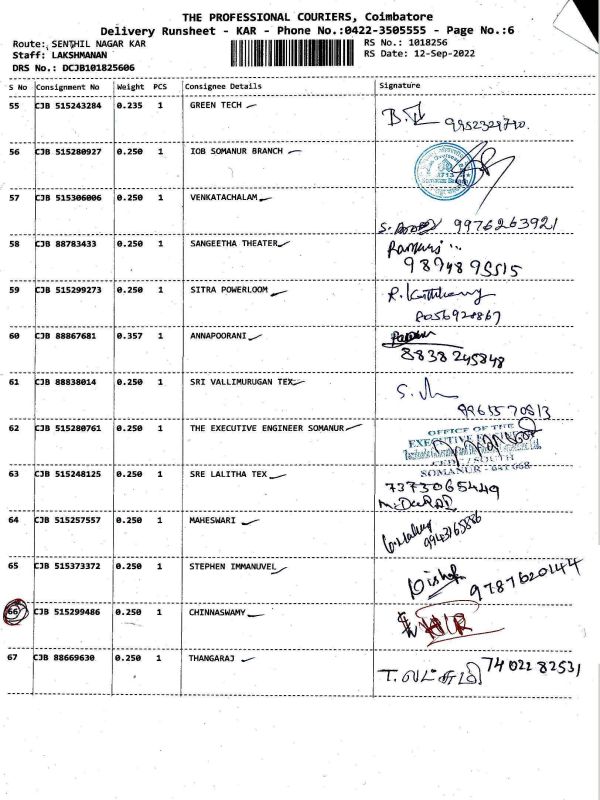 THE PROFESSIONAL COURIERS, Coimbatore
Delivery Runsheet - KAR - Phone No.:0422-3505555 - Page No.:6
Route: SENTHIL NAGAR KAR
RS No.: 1018256
Staff: LAKSHMANAN
RS Date: 12-Sep-2022
DRS No.: DCJB101825606
S No Consignment No Weight PCS Consignee Details Signature
55 CJB 515243284 0.235 1 GREEN TECH
56 CJB 515280927 0.250 1 IOB SOMANUR BRANCH
57 CJB 515306006 0.250 1 VENKATACHALAM
9976263921
58 CJB 88783433 0.250 1 SANGEETHA THEATER
59 CJB 515299273 0.250 1 SITRA POWERLOOM
8056920867
60 CJB 88867681 0.357 1 ANNAPOORANI
8838245848
61 CJB 88838014 0.250 1 SRI VALLIMURUGAN TEX
62 CJB 515280761 0.250 1 THE EXECUTIVE ENGINEER SOMANUR
OFFICE OF THE
SOUTH
SOMANUR - 641 668
63 CJB 515248125 0.250 1 SRE LALITHA TEX
7373065449
64 CJB 515257557 0.250 1 MAHESWARI
9943165886
65 CJB 515373372 0.250 1 STEPHEN IMMANUVEL
9787620144
66 CJB 515299486 0.250 1 CHINNASWAMY
67 CJB 88669630 0.250 1 THANGARAJ
T. லட்சுமி 7402282531